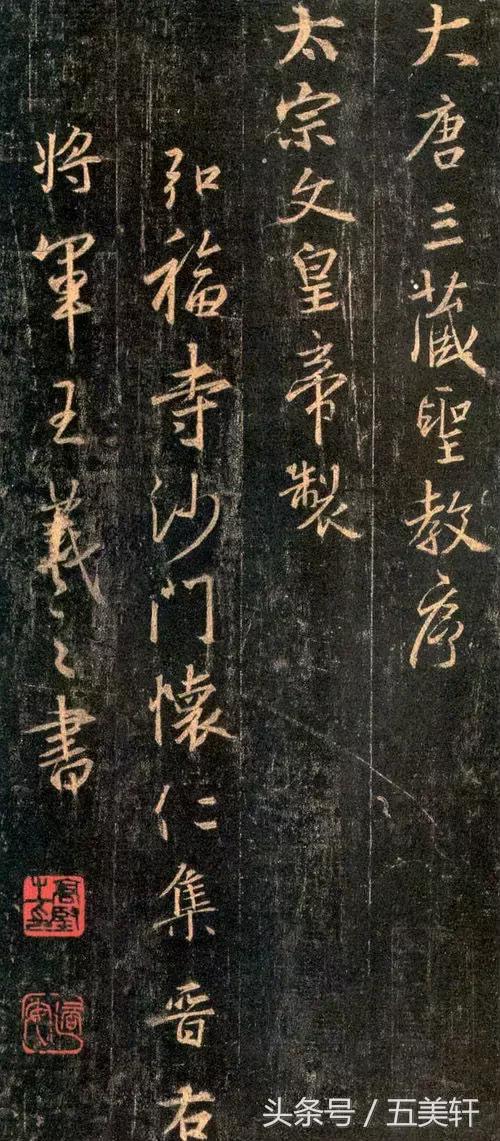 大唐三藏聖教序
太宗文皇帝製
弘福寺沙門懷仁集晋右
将軍王羲之書
头条号 / 五美轩